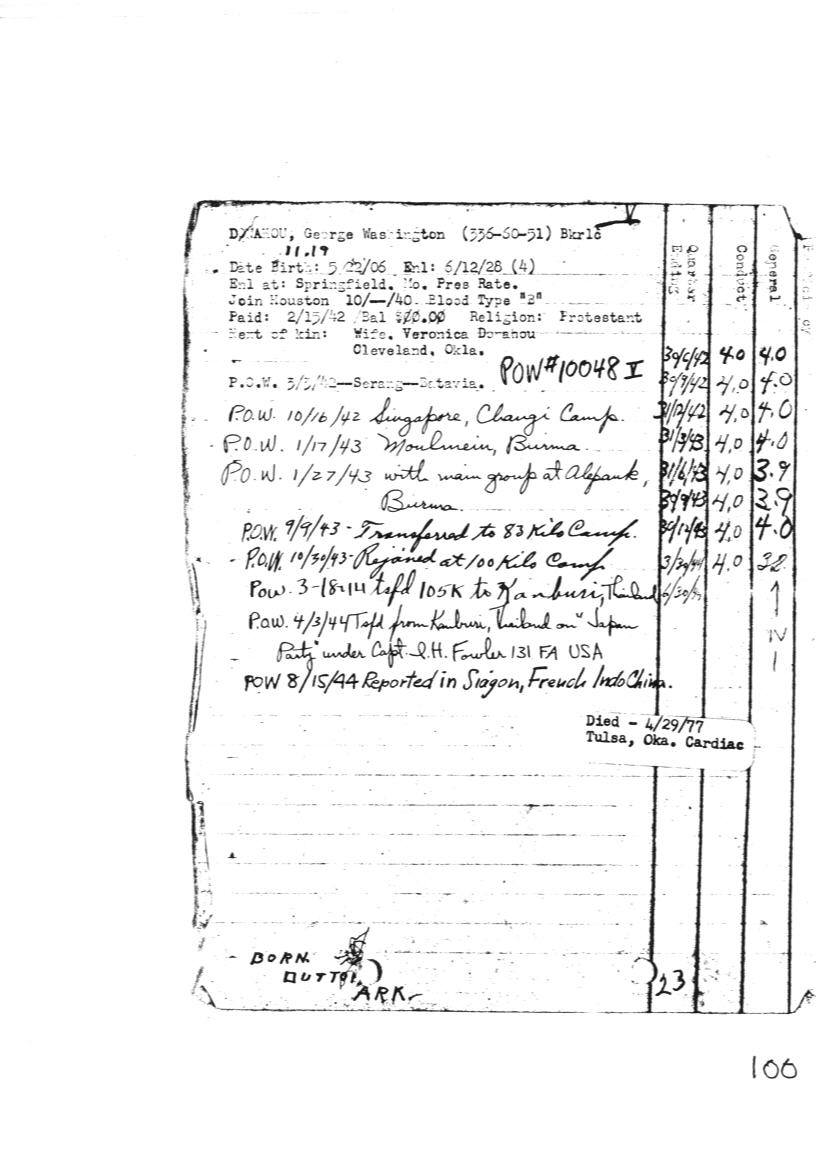 George Washington (336-60-51) Bkr1c
11.19
Date Birth: 5/22/06 Enl: 6/12/28 (4)
Enl at: Springfield, Mo. Pres Rate.
Join Houston 10/--/40. Blood Type "B"
Paid: 2/15/42 Bal $00.00 Religion: Protestant
Next of kin: Wife, Veronica Dorahou
Cleveland, Okla.
POW#10048 V
P.O.W. 3/3/42--Serang--Batavia.
P.O.W. 10/16/42 Singapore, Changi Camp.
P.O.W. 1/17/43 Moulmein, Burma
P.O.W. 1/27/43 with main group at Alepauk,
Burma.
P.O.W. 9/9/43 - Transferred to 83 Kilo Camp.
P.O.W. 10/30/43 - Rejoined at 100 Kilo Camp
POW. 3-18-44 tsfd 105K to Kanburi, Thailand
P.O.W. 4/3/44 Tsfd from Kanburi, Thailand on "Japan
Party" under Capt. I.H. Fowler 131 FA USA
POW 8/15/44 Reported in Siagon, French Indo China.
Died - 4/29/77
Tulsa, Oka. Cardiac
BORN
ARK-
Quarter Ending Conduct General
30/6/42 4.0 4.0
30/9/42 4.0 4.0
31/12/42 4.0 4.0
31/3/43 4.0 4.0
31/6/43 4.0 3.9
30/9/43 4.0 3.9
30/12/43 4.0 4.0
3/30/44 4.0 32
23
100